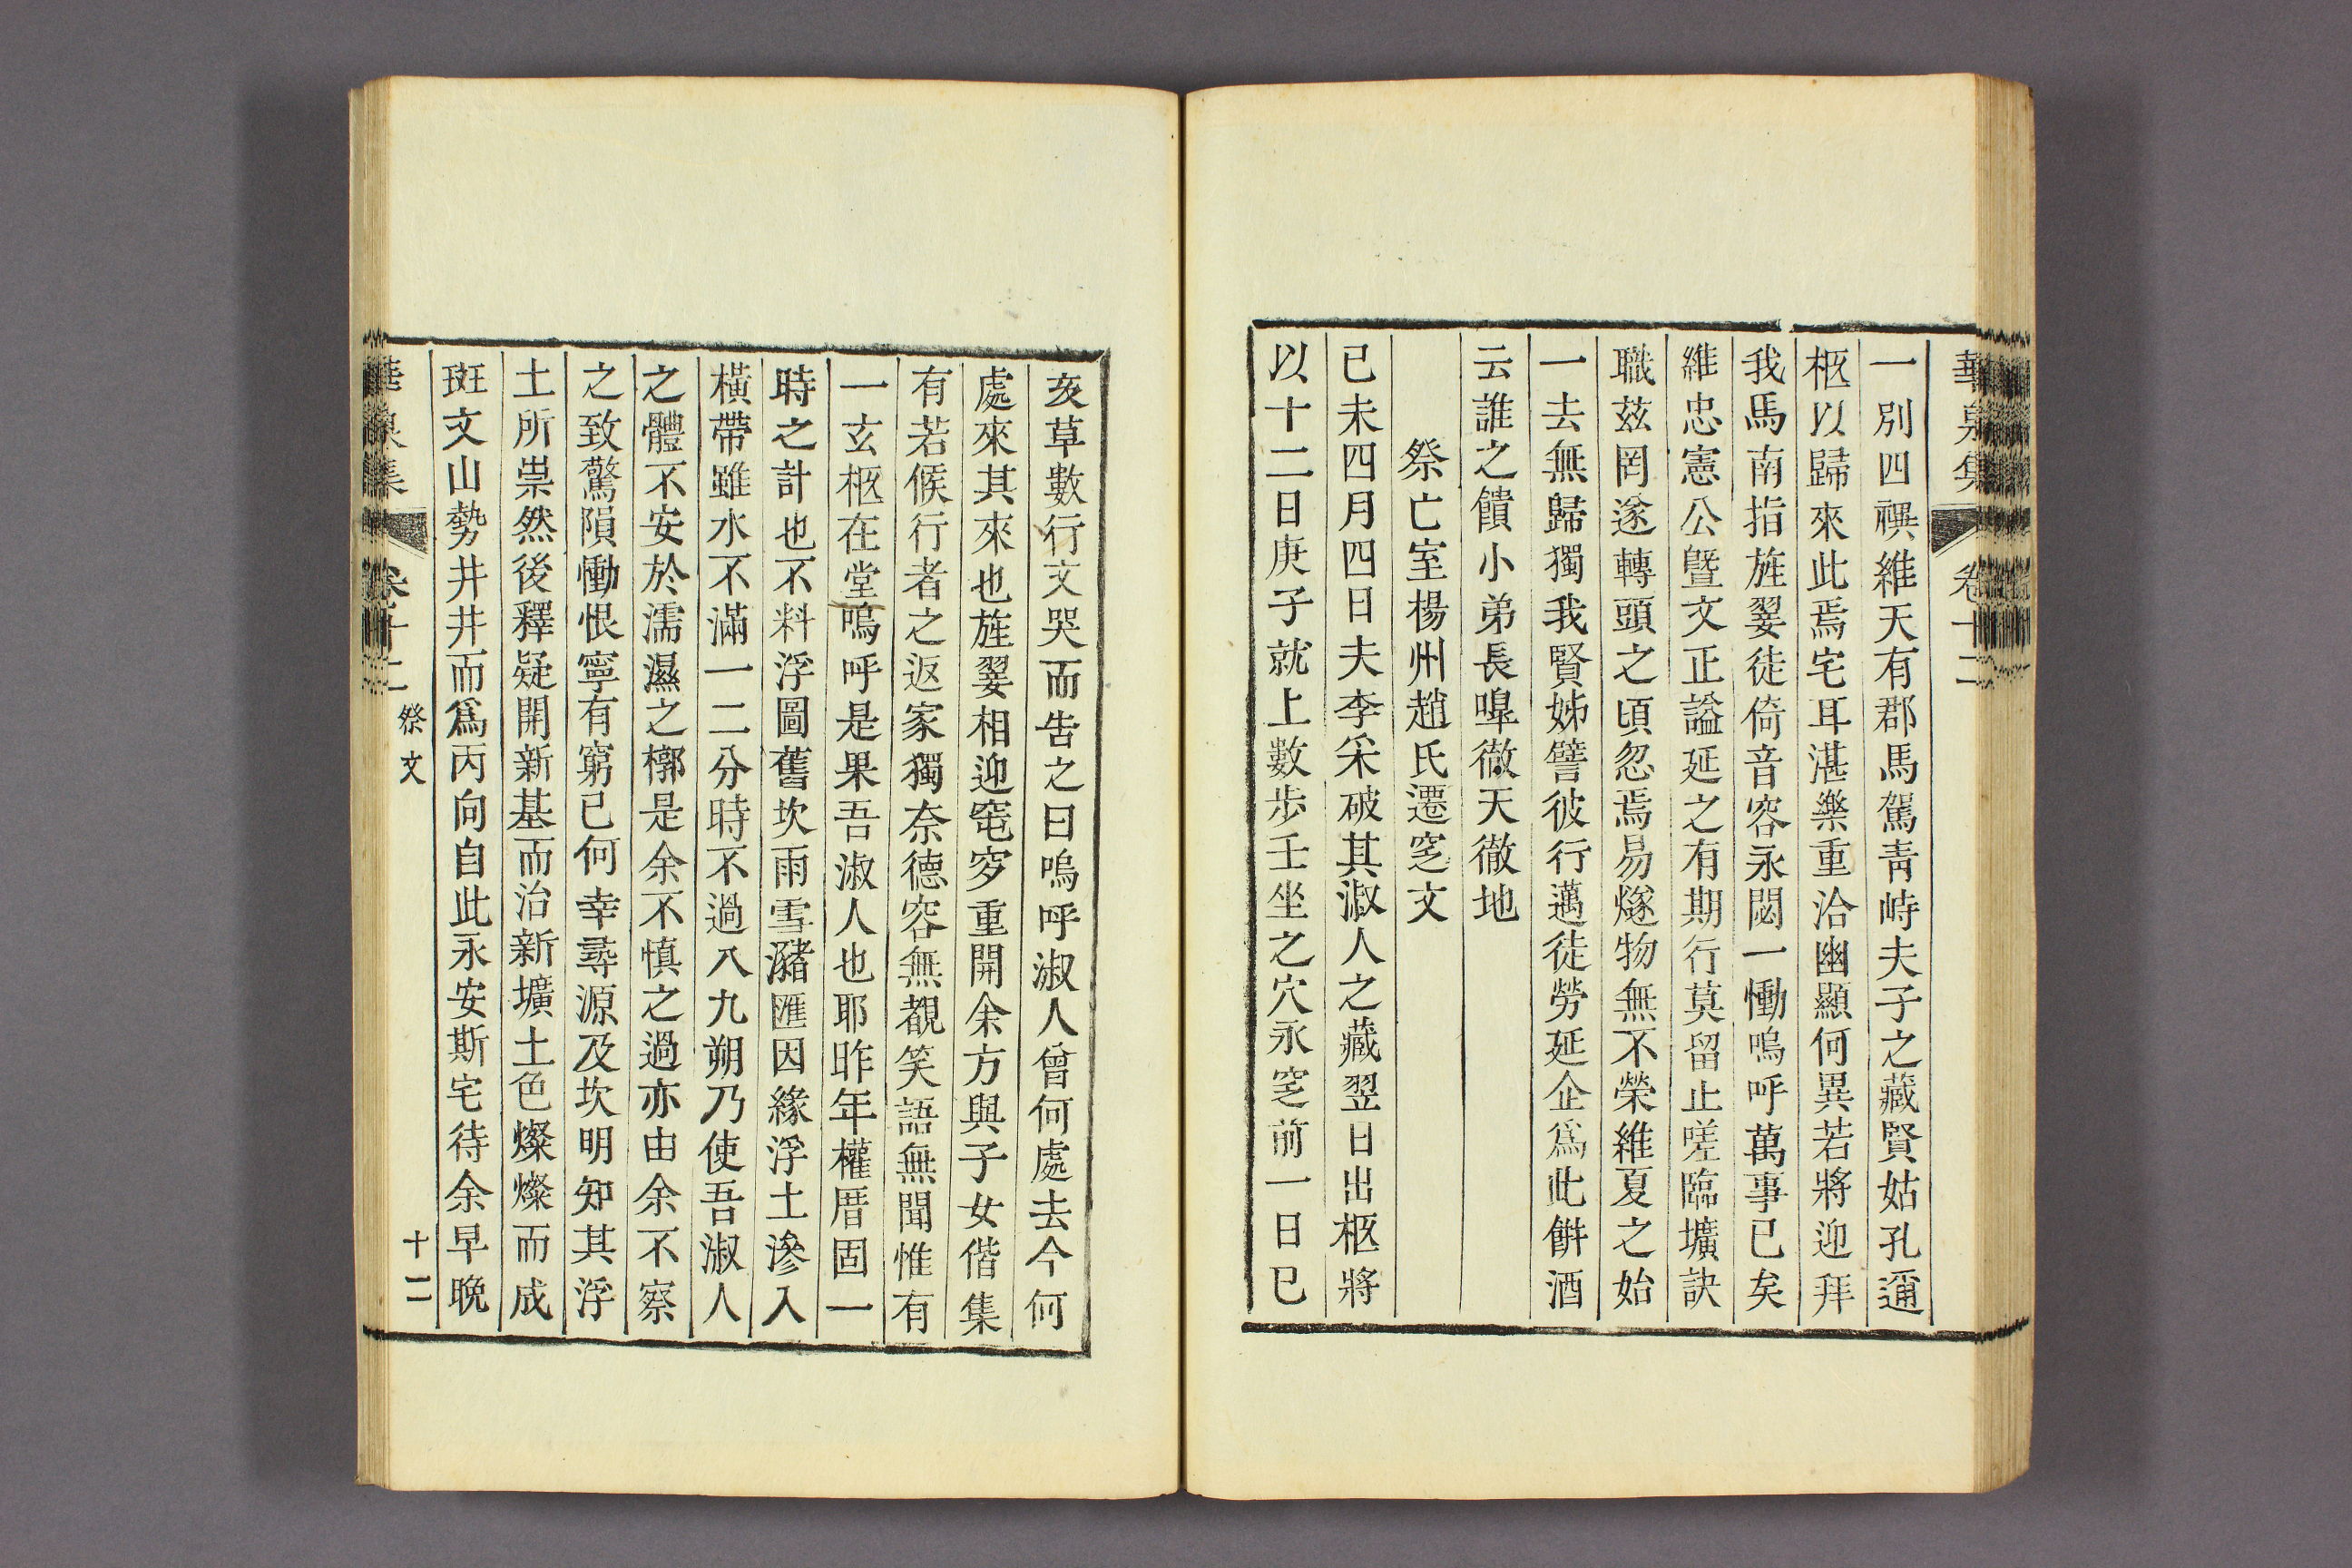 華泉集 卷十二
一別四禩維天有郡馬駕青峙夫子之藏賢姑孔邇
柩以歸來此焉宅耳湛樂重洽幽顯何異若將迎拜
我馬南指旌翣徒倚音容永閟一慟嗚呼萬事已矣
維忠憲公曁文正謚延之有期行莫留止嗟臨壙訣
職茲罔遂轉頭之頃忽焉易燧物無不榮維夏之始
一去無歸獨我賢姊譬彼行邁徒勞延企爲此餠酒
云誰之饋小弟長嘷徹天徹地
祭亡室楊州趙氏遷窆文
已未四月四日夫李采破其淑人之藏翌日出柩將
以十二日庚子就上數步壬坐之穴永窆前一日巳
亥草數行文哭而告之曰嗚呼淑人曾何處去今何
處來其來也旌翣相迎窀穸重開余方與子女偕集
有若候行者之返家獨奈德容無覩笑語無聞惟有
一玄柩在堂嗚呼是果吾淑人也耶昨年權厝固一
時之計也不料浮圖舊坎雨雪瀦匯因緣浮土滲入
橫帶雖水不滿一二分時不過八九朔乃使吾淑人
之體不安於濡濕之槨是余不愼之過亦由余不察
之致驚隕慟恨寧有窮已何幸尋源及坎明知其浮
土所祟然後釋疑開新基而治新壙土色燦燦而成
斑文山勢井井而爲丙向自此永安斯宅待余早晩
華泉集 卷十二 祭文 十二